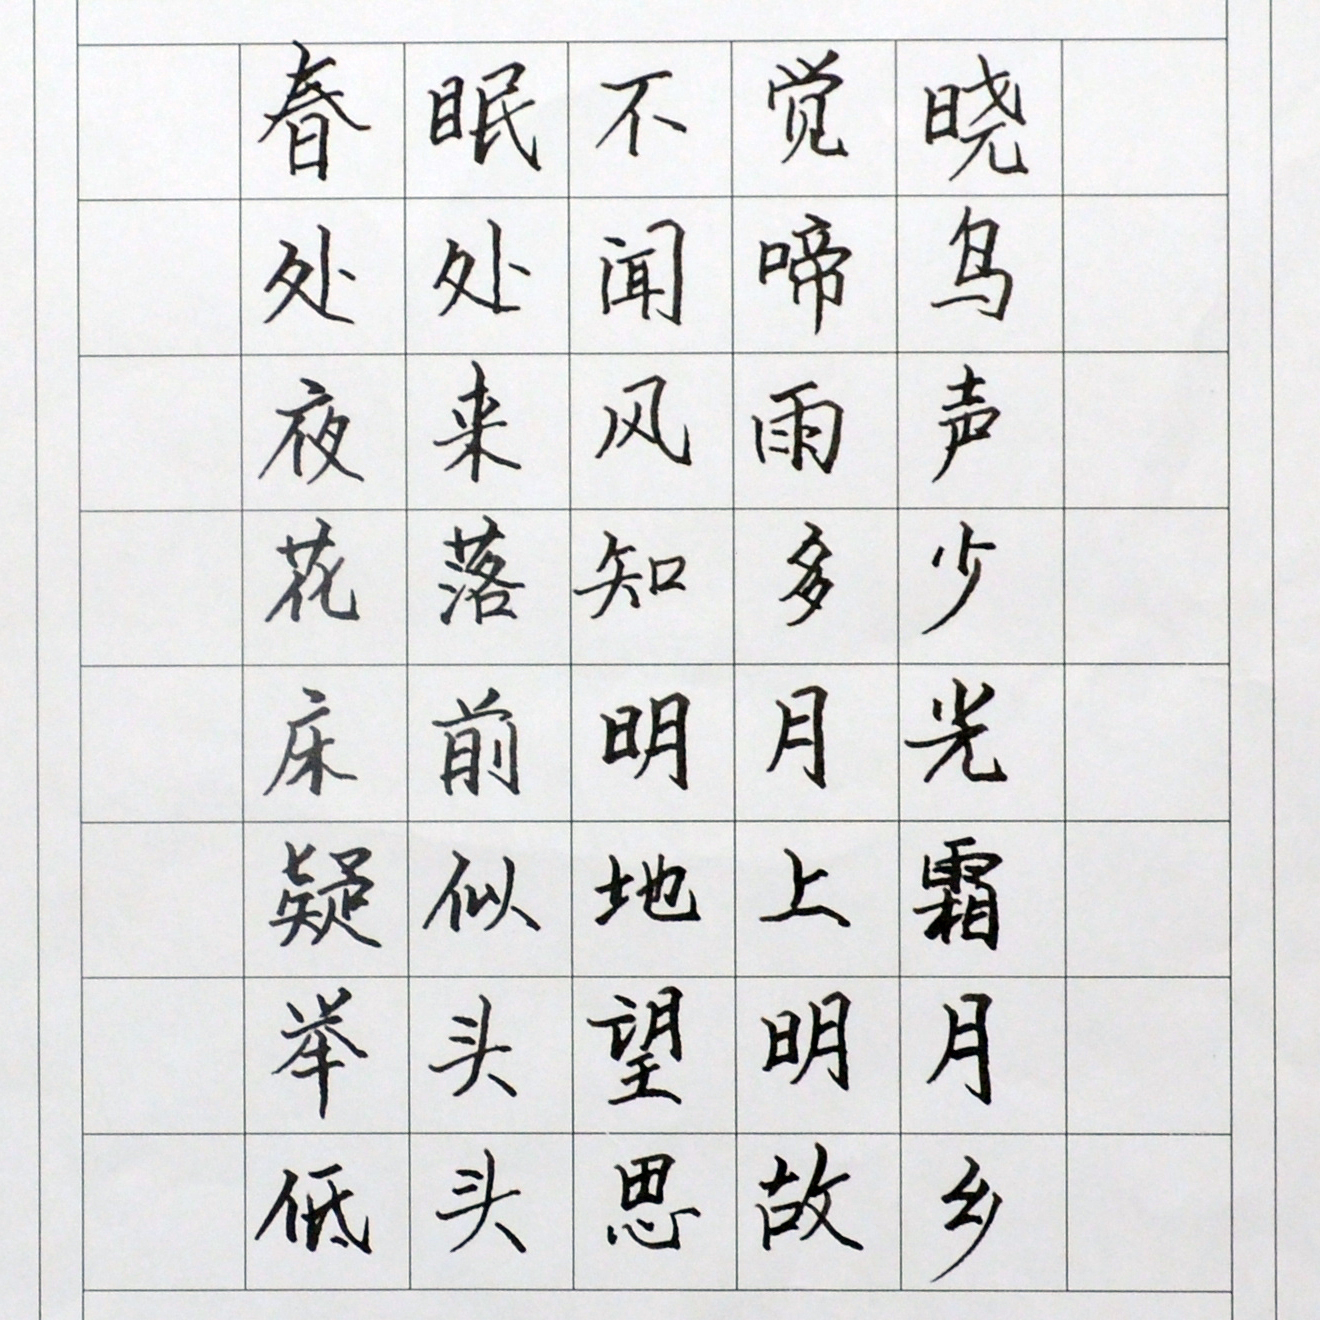 春眠不觉晓
处处闻啼鸟
夜来风雨声
花落知多少
床前明月光
疑似地上霜
举头望明月
低头思故乡